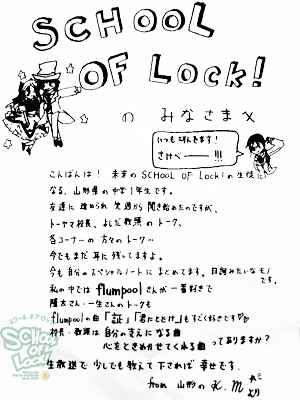 SCHOOL
OF LOCK!
の みなさまへ
いつも聴いてます!
さけべーーー!!!
こんばんは! 未来の SCHOOL OF LOCK! の生徒に
なる、山形県の中学1年生です。
友達に進められ 先週から聞き始めたのですが、
トーヤマ校長、よしだ教頭のトーク、
各コーナーの 方々のトーク…
今でもまだ 耳に 残ってますよ。
今も自分の スペシャルノートに まとめてます。自調みたいなモノです。
私の中では flumpool さんが 一番好きで
隆太さん・一生さんのトークも
flumpoolの曲「証」「君にとどけ」もすごく好きです♡♡
校長・教頭は 自分の支えになる曲
心をときめかせてくれる曲 ってありますか?
生放送で 少しでも教えて下されば 幸せです。
from 山形の K.M
より
スクール オブ ロック
SCHOOL
OF
LOCK!